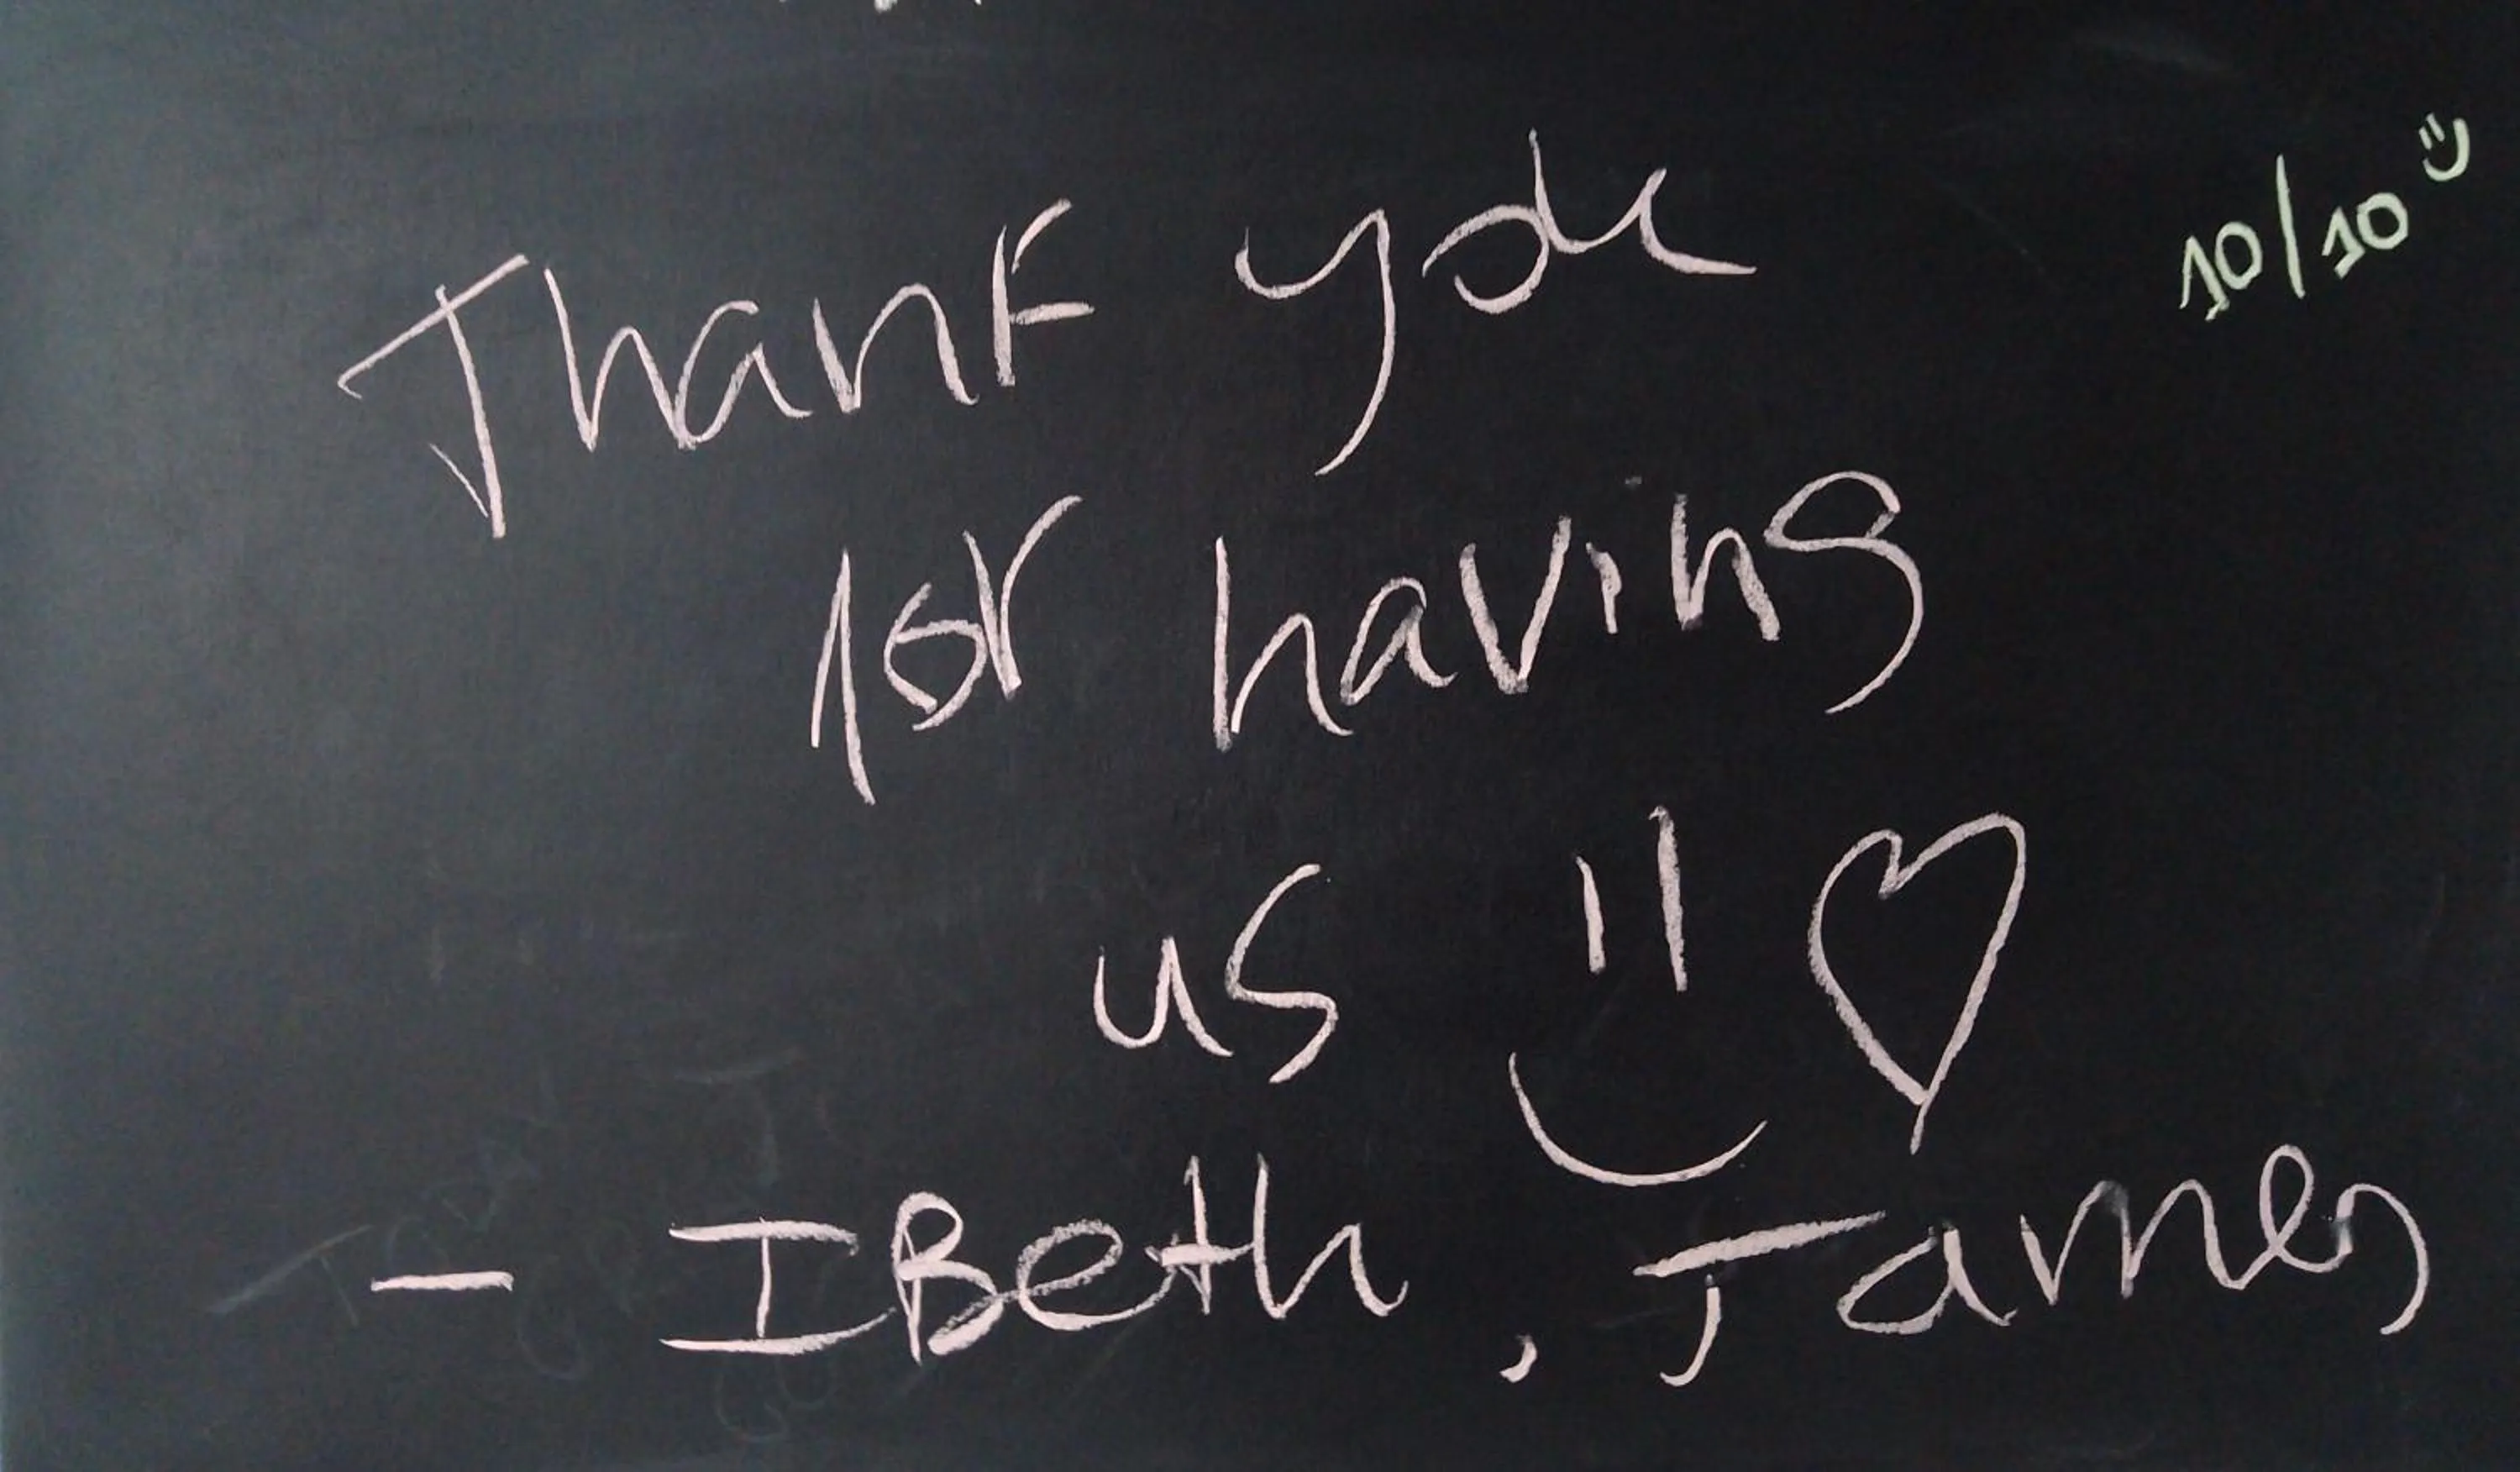 Thank you
for having
us
- IBeth, James
10/10